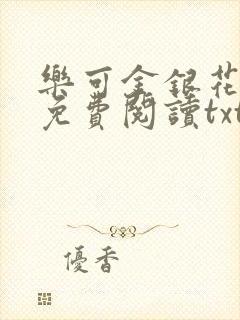 樂可金銀花
免費閱讀txt
優香